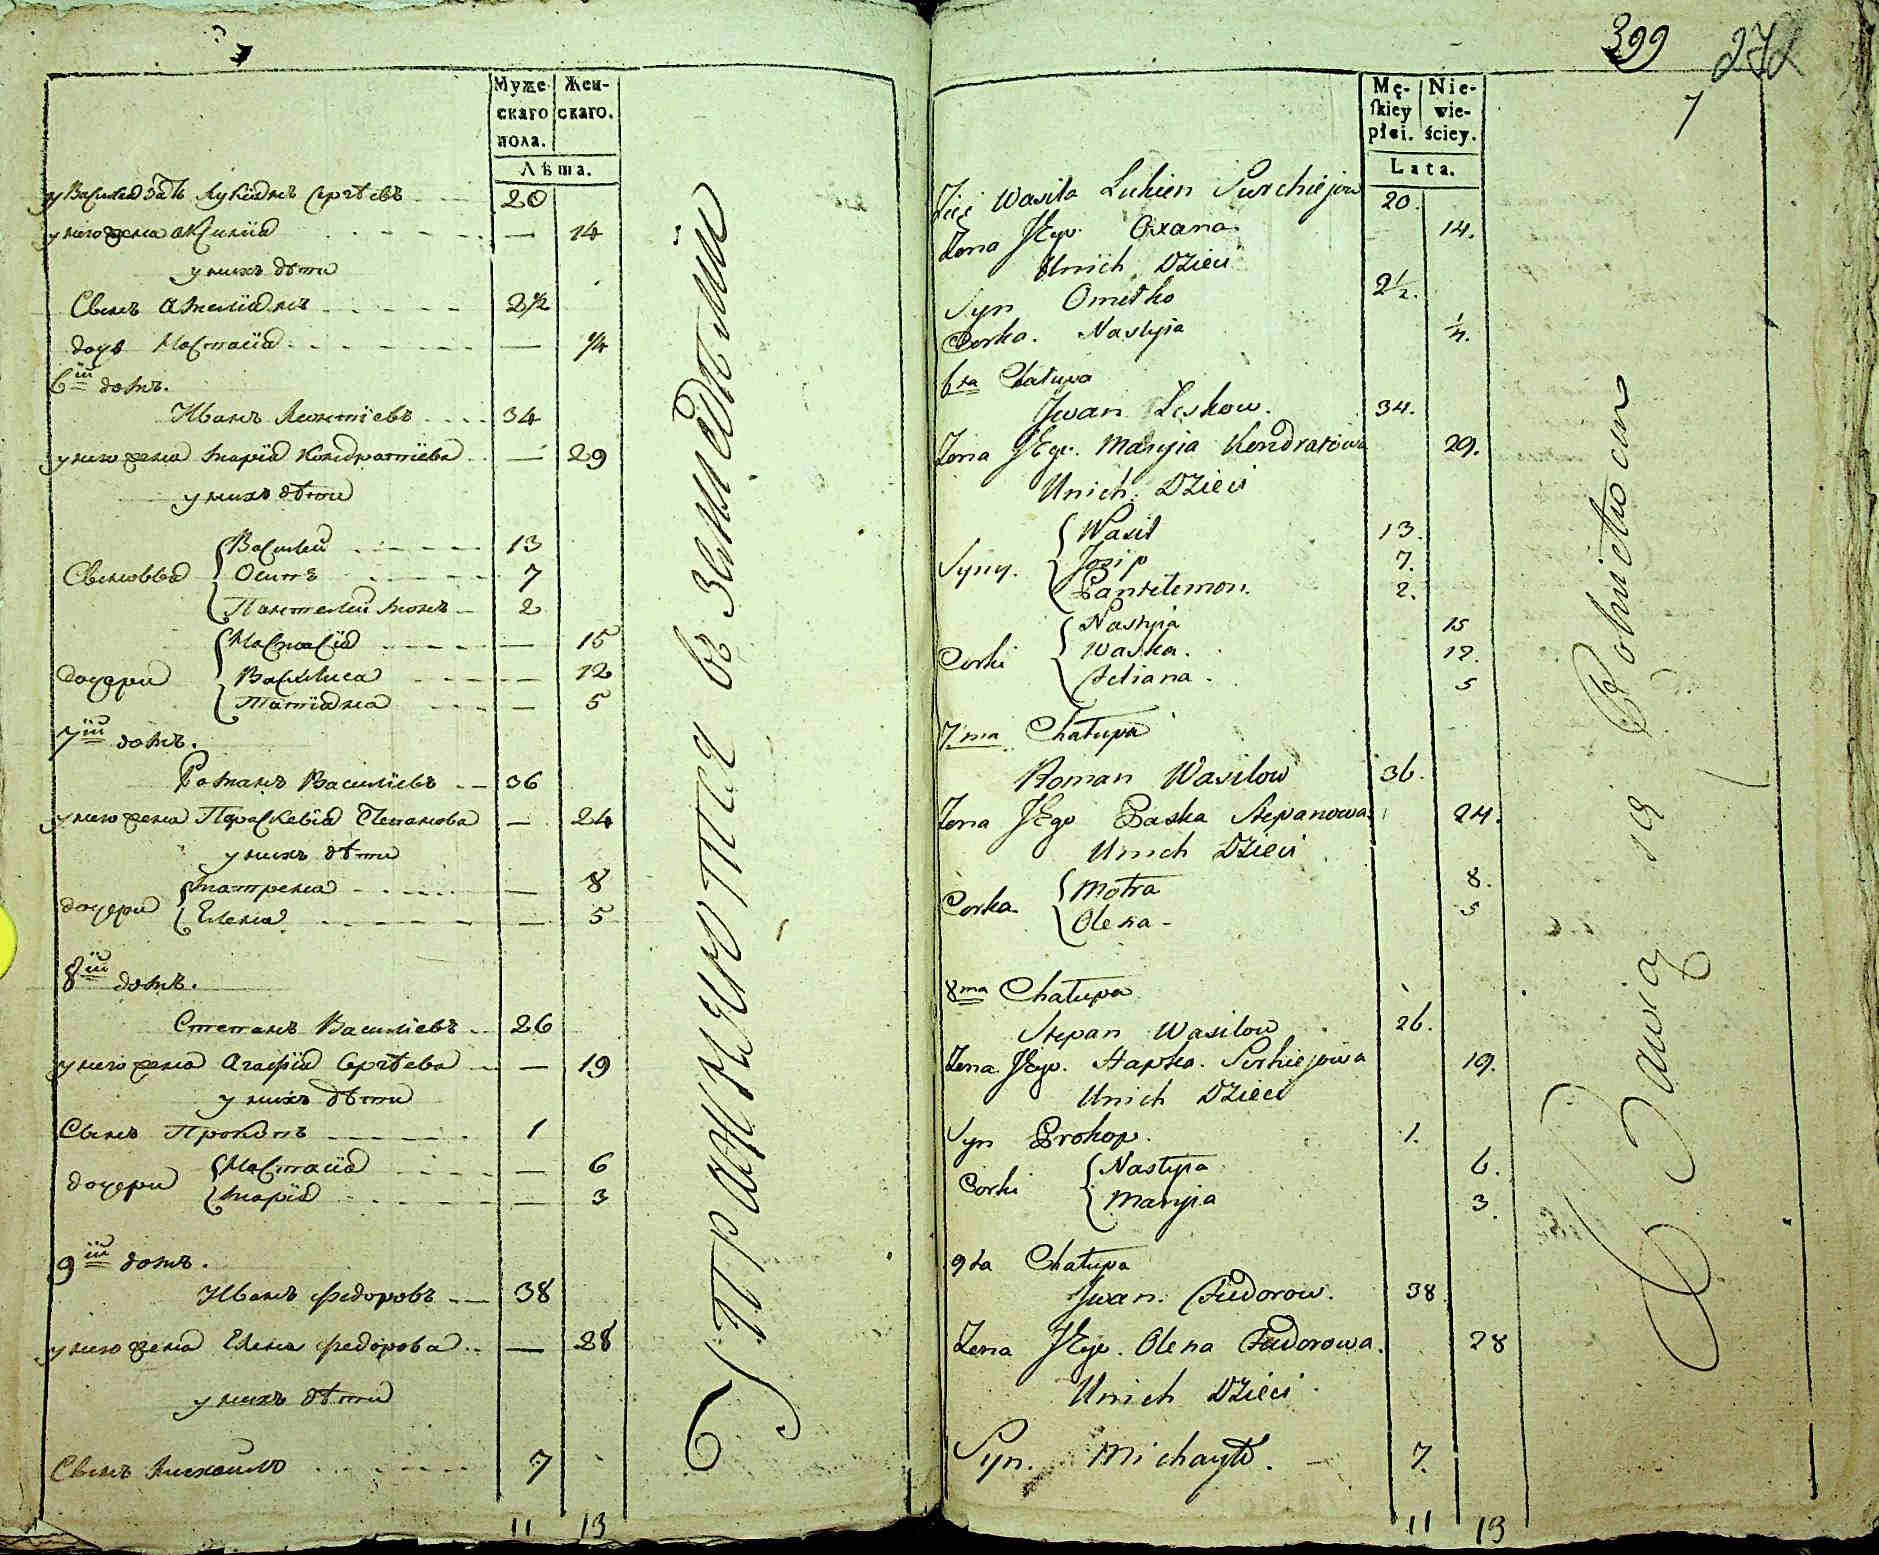 Муже-
скаго
пола.
Жен-
скаго.
Лѣта.
у Василія зать Лукіянъ Сергѣевъ 20
у него жена Аксинія — 14
у нихъ дѣти
Сынъ Омеліянъ 2½
дочь Настасія — ¼
6ій домъ.
Иванъ Леонтіевъ 34
у него жена Марія Кондратіева — 29
у нихъ дѣти
Сыновья Василей 13
Осипъ 7
Пантелеймонъ 2
дочери Настасія — 15
Василиса — 12
Татіяна — 5
7ій домъ.
Романъ Василіевъ 36
у него жена Параскевія Степанова — 24
у нихъ дѣти
дочери Матрена — 8
Елена — 5
8ій домъ.
Степанъ Василіевъ 26
у него жена Агафія Сергѣева — 19
у нихъ дѣти
Сынъ Прокопъ 1
дочери Настасія — 6
Марія — 3
9ій домъ.
Иванъ Федоровъ 38
у него жена Елена Федорова — 28
у нихъ дѣти
Сынъ Михайло 7
11 13
Упражняются въ земледѣліи
399
7
Mę-
skiey
płci.
Nie-
wie-
ściey.
Lata.
Zięć Wasila Lukien Serchiejow 20
Zona JEgo Oxana 14.
Unich Dzieci
Syn Omelko 2½.
Corka Nastyia ¼.
6ta Chałupa
Jwan Leskow. 34.
Zona JEgo Maryia Kondratowa 29.
Unich Dzieci
Syny. Wasil 13.
Jozip 7.
Pantelemon. 2.
Corki Nastyia 15
Waska. 12.
Tetiana. 5
7ma Chałupa
Roman Wasilow 36.
Zona JEgo Paska Stepanowa. 24.
Unich Dzieci
Corka Motra 8.
Olena 5
8ma Chałupa
Stepan Wasilow 26.
Zona JEgo Hapka Serhiejowa 19.
Unich Dzieci
Syn Prokop. 1.
Corki Nastyia 6.
Maryia 3.
9ta Chałupa
Jwan Chudorow. 38
Zona JEgo Olena Chudorowa. 28
Unich Dzieci
Syn. Michayło. 7.
11 13
Bawią się Rolnictwem